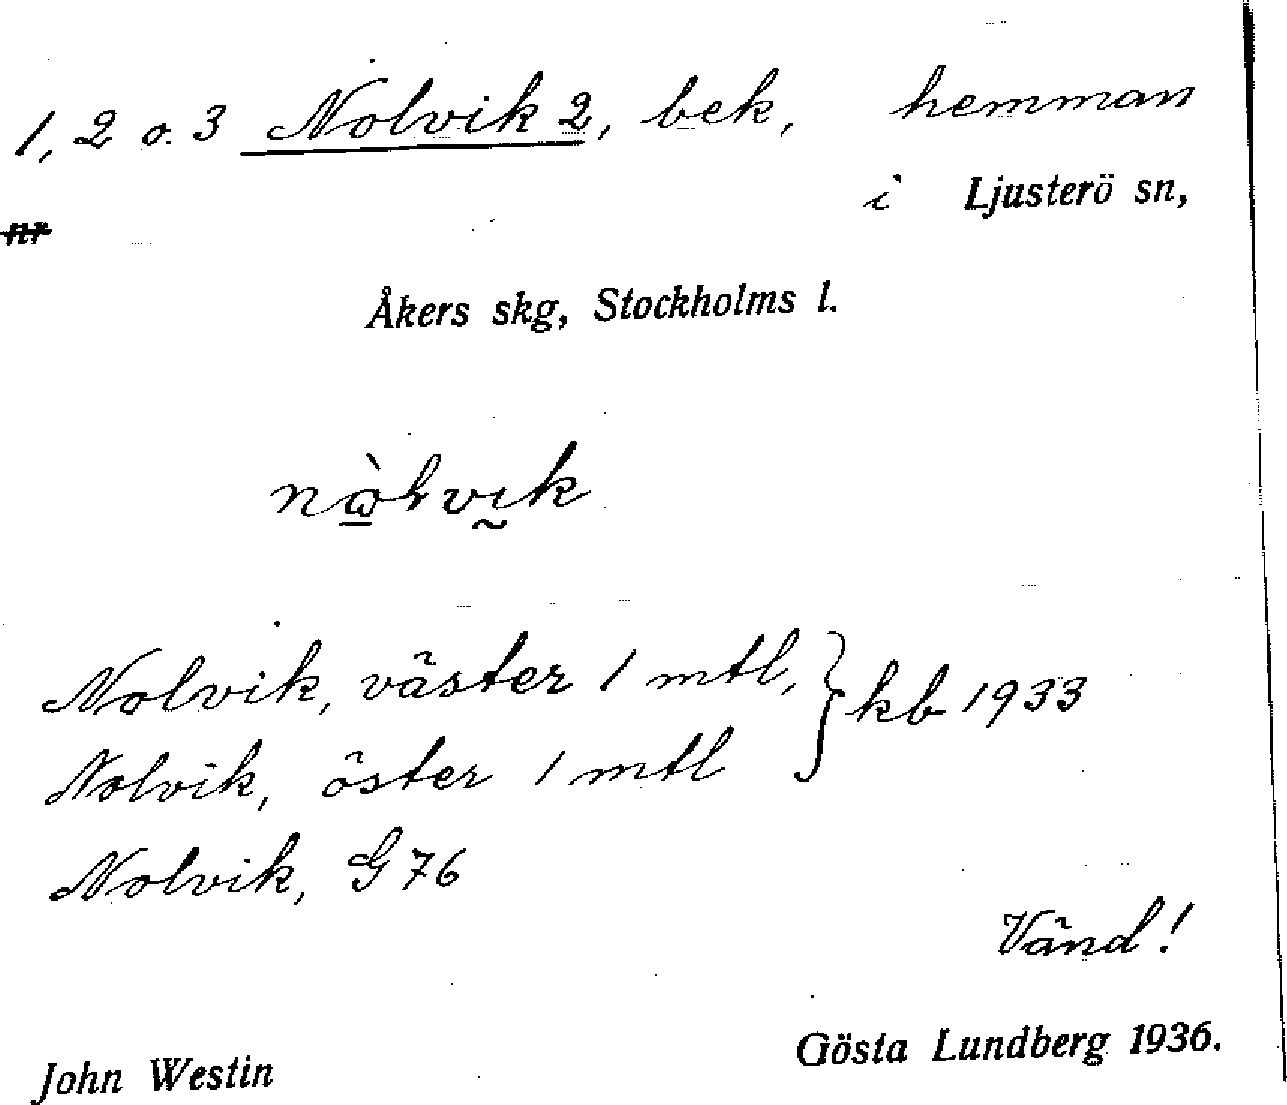 1, 2 o. 3 Nolvik 2, bek, hemman
i Ljusterö sn,
nr
Åkers skg, Stockholms l.
Nolvik, väster 1 mtl, } kb 1933
Nolvik, öster 1 mtl
Nolvik, G 76
Vänd!
John Westin Gösta Lundberg 1936.